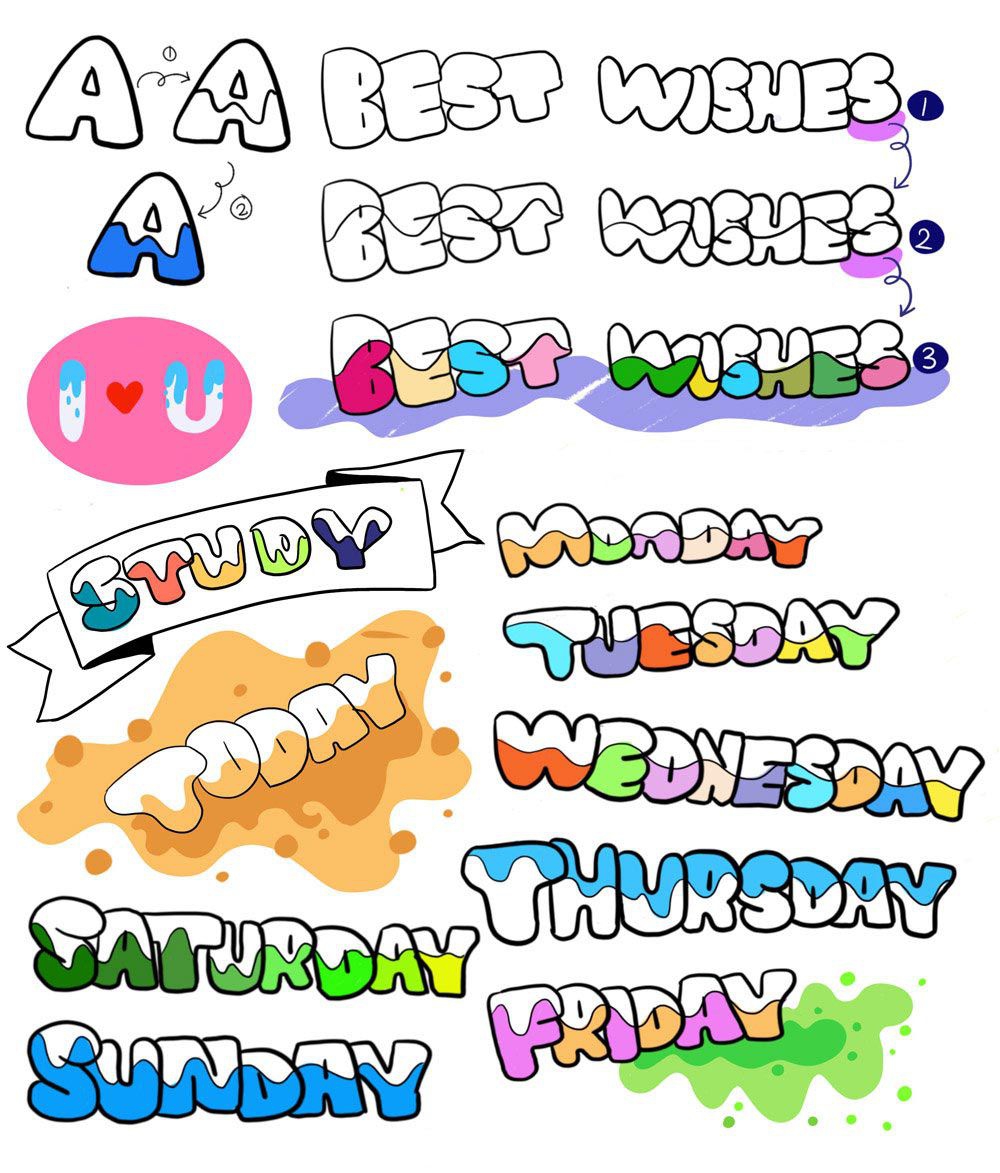 A ① A
② A
BEST WISHES 1
BEST WISHES 2
BEST WISHES 3
I ♥ U
STUDY
TODAY
MONDAY
TUESDAY
WEDNESDAY
THURSDAY
FRIDAY
SATURDAY
SUNDAY